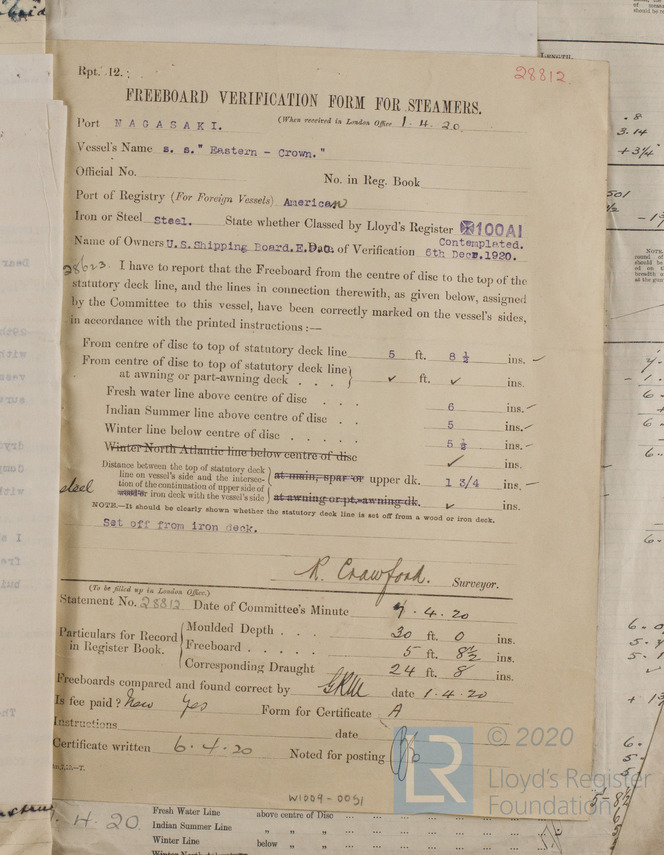 Rpt. 12.
28812
FREEBOARD VERIFICATION FORM FOR STEAMERS.
Port NAGASAKI. (When received in London Office 1.4.20
Vessel's Name s. s." Eastern - Crown."
Official No. No. in Reg. Book
Port of Registry (For Foreign Vessels) American
Iron or Steel Steel. State whether Classed by Lloyd's Register 100A1
Contemplated.
Name of Owners U.S.Shipping Board. Date of Verification 6th Dec. 1920.
28623. I have to report that the Freeboard from the centre of disc to the top of the
statutory deck line, and the lines in connection therewith, as given below, assigned
by the Committee to this vessel, have been correctly marked on the vessel's sides,
in accordance with the printed instructions :—
From centre of disc to top of statutory deck line 5 ft. 8 ½ ins. ✓
From centre of disc to top of statutory deck line
at awning or part-awning deck . . . ✓ ft. ✓ ins.
Fresh water line above centre of disc . . . 6 ins. ✓
Indian Summer line above centre of disc . . 5 ins. ✓
Winter line below centre of disc . . . . . 5 ½ ins.
Winter North Atlantic line below centre of disc ✓ ins.
Distance between the top of statutory deck
line on vessel's side and the intersec-
tion of the continuation of upper side of
steel wood or iron deck with the vessel's side
at main, spar or upper dk. 1 3/4 ins.
at awning or pt.-awning dk. ✓ ins.
NOTE.—It should be clearly shown whether the statutory deck line is set off from a wood or iron deck.
Set off from iron deck.
R. Crawford. Surveyor.
(To be filled up in London Office.)
Statement No. 28812 Date of Committee's Minute 7.4.20
Particulars for Record
in Register Book.
Moulded Depth . . . 30 ft. 0 ins.
Freeboard . . . . . 5 ft. 8½ ins.
Corresponding Draught 24 ft. 8 ins.
Freeboards compared and found correct by date 1.4.20
Is fee paid? New Yes Form for Certificate A
Instructions date
Certificate written 6.4.20 Noted for posting
W1009-0051
LR
© 2020
Lloyd's Register
Foundation
4.20
Fresh Water Line above centre of Disc
Indian Summer Line " " "
Winter Line below " "